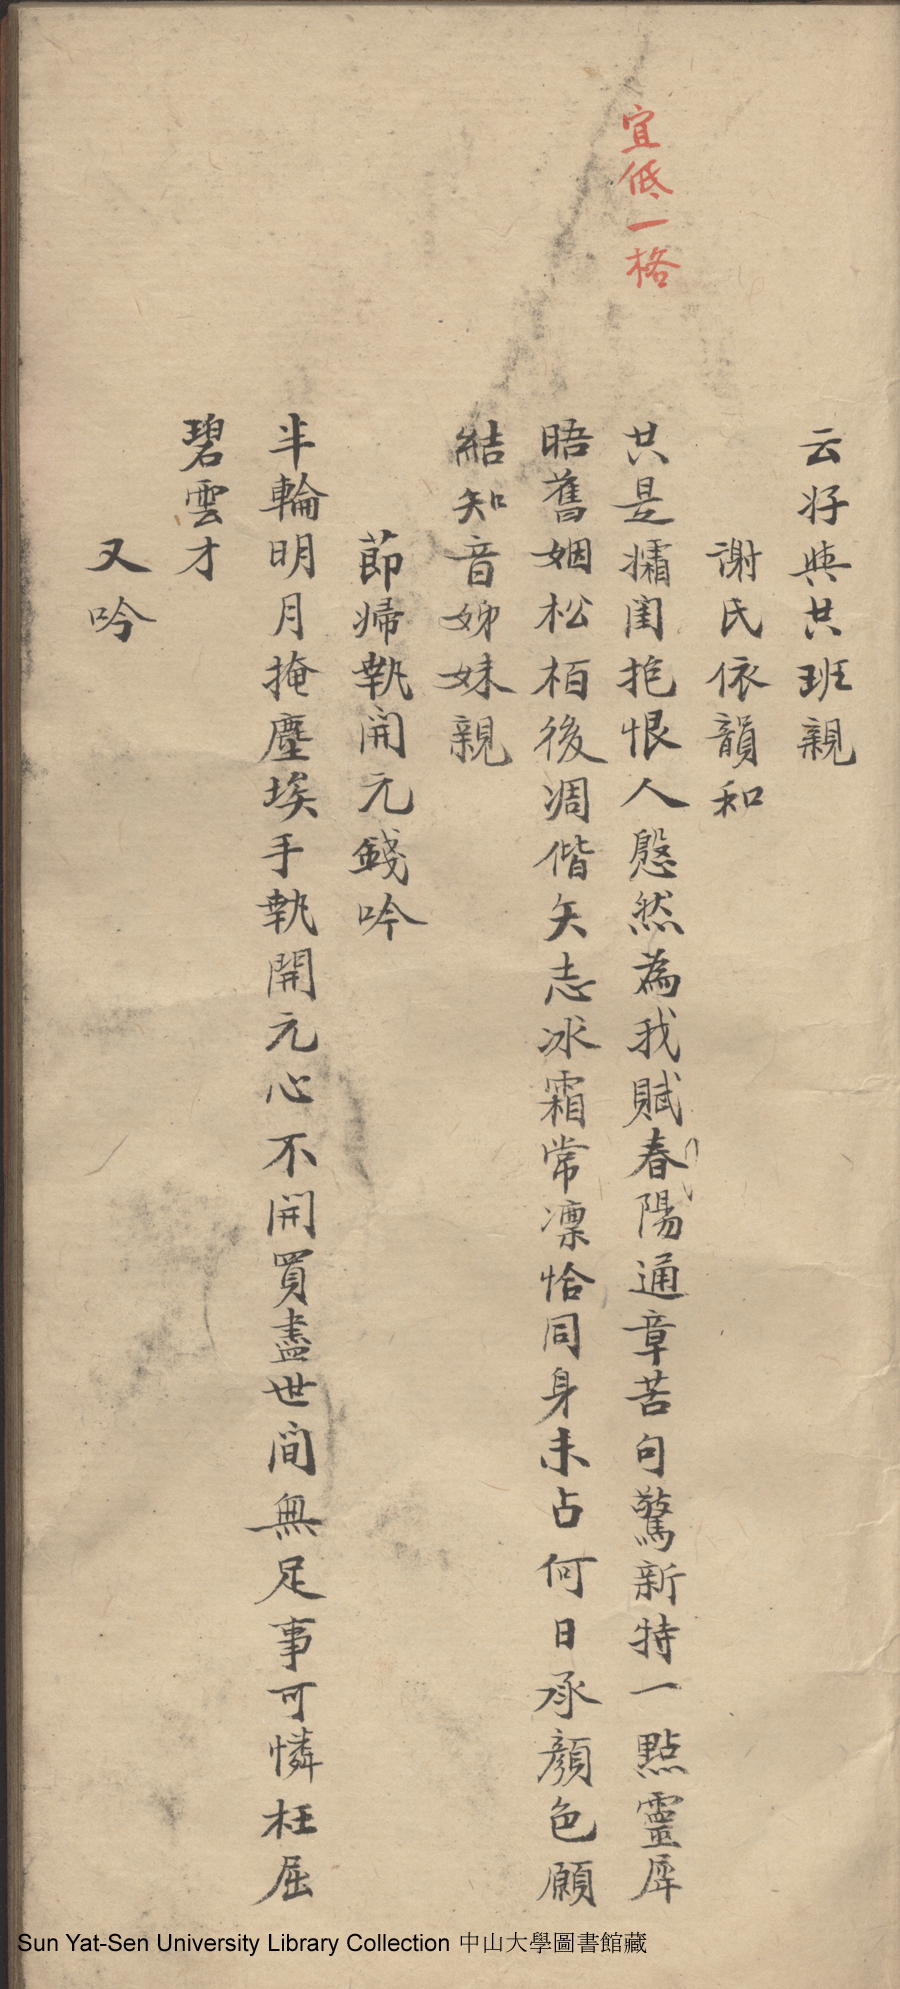 宜低一格
云好與共班親
謝氏依韻和
共是孀閨抱恨人慇然為我賦春陽通章苦句驚新特一點靈犀
晤舊姻松栢後凋偕矢志冰霜常凛恰同身未占何日承顏色願
結知音姊妹親
莭婦執開元錢吟
半輪明月掩塵埃手執開元心不開買盡世間無足事可憐枉屈
碧雲才
又吟
Sun Yat-Sen University Library Collection 中山大學圖書館藏